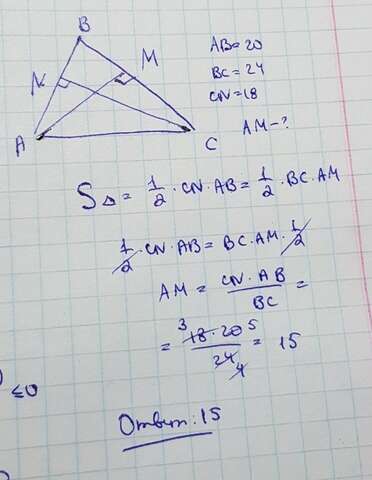 B
N M
A C
AB=20
BC=24
CN=18
AM-?
S△=1/2·CN·AB=1/2·BC·AM
1/2·CN·AB=BC·AM·1/2
AM=CN·AB/BC=
=3 18·20 5/24 4=15
≤0
Ответ:15